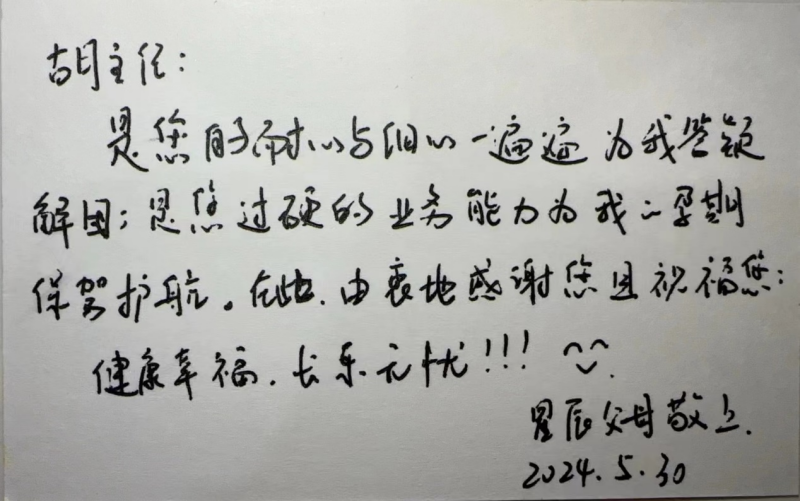 胡主任:
是您用耐心与细心一遍遍为我答疑
解困;是您过硬的业务能力为我的孕期
保驾护航。在此,由衷地感谢您且祝福您:
健康幸福,长乐无忧!!!
星辰父母敬上.
2024.5.30